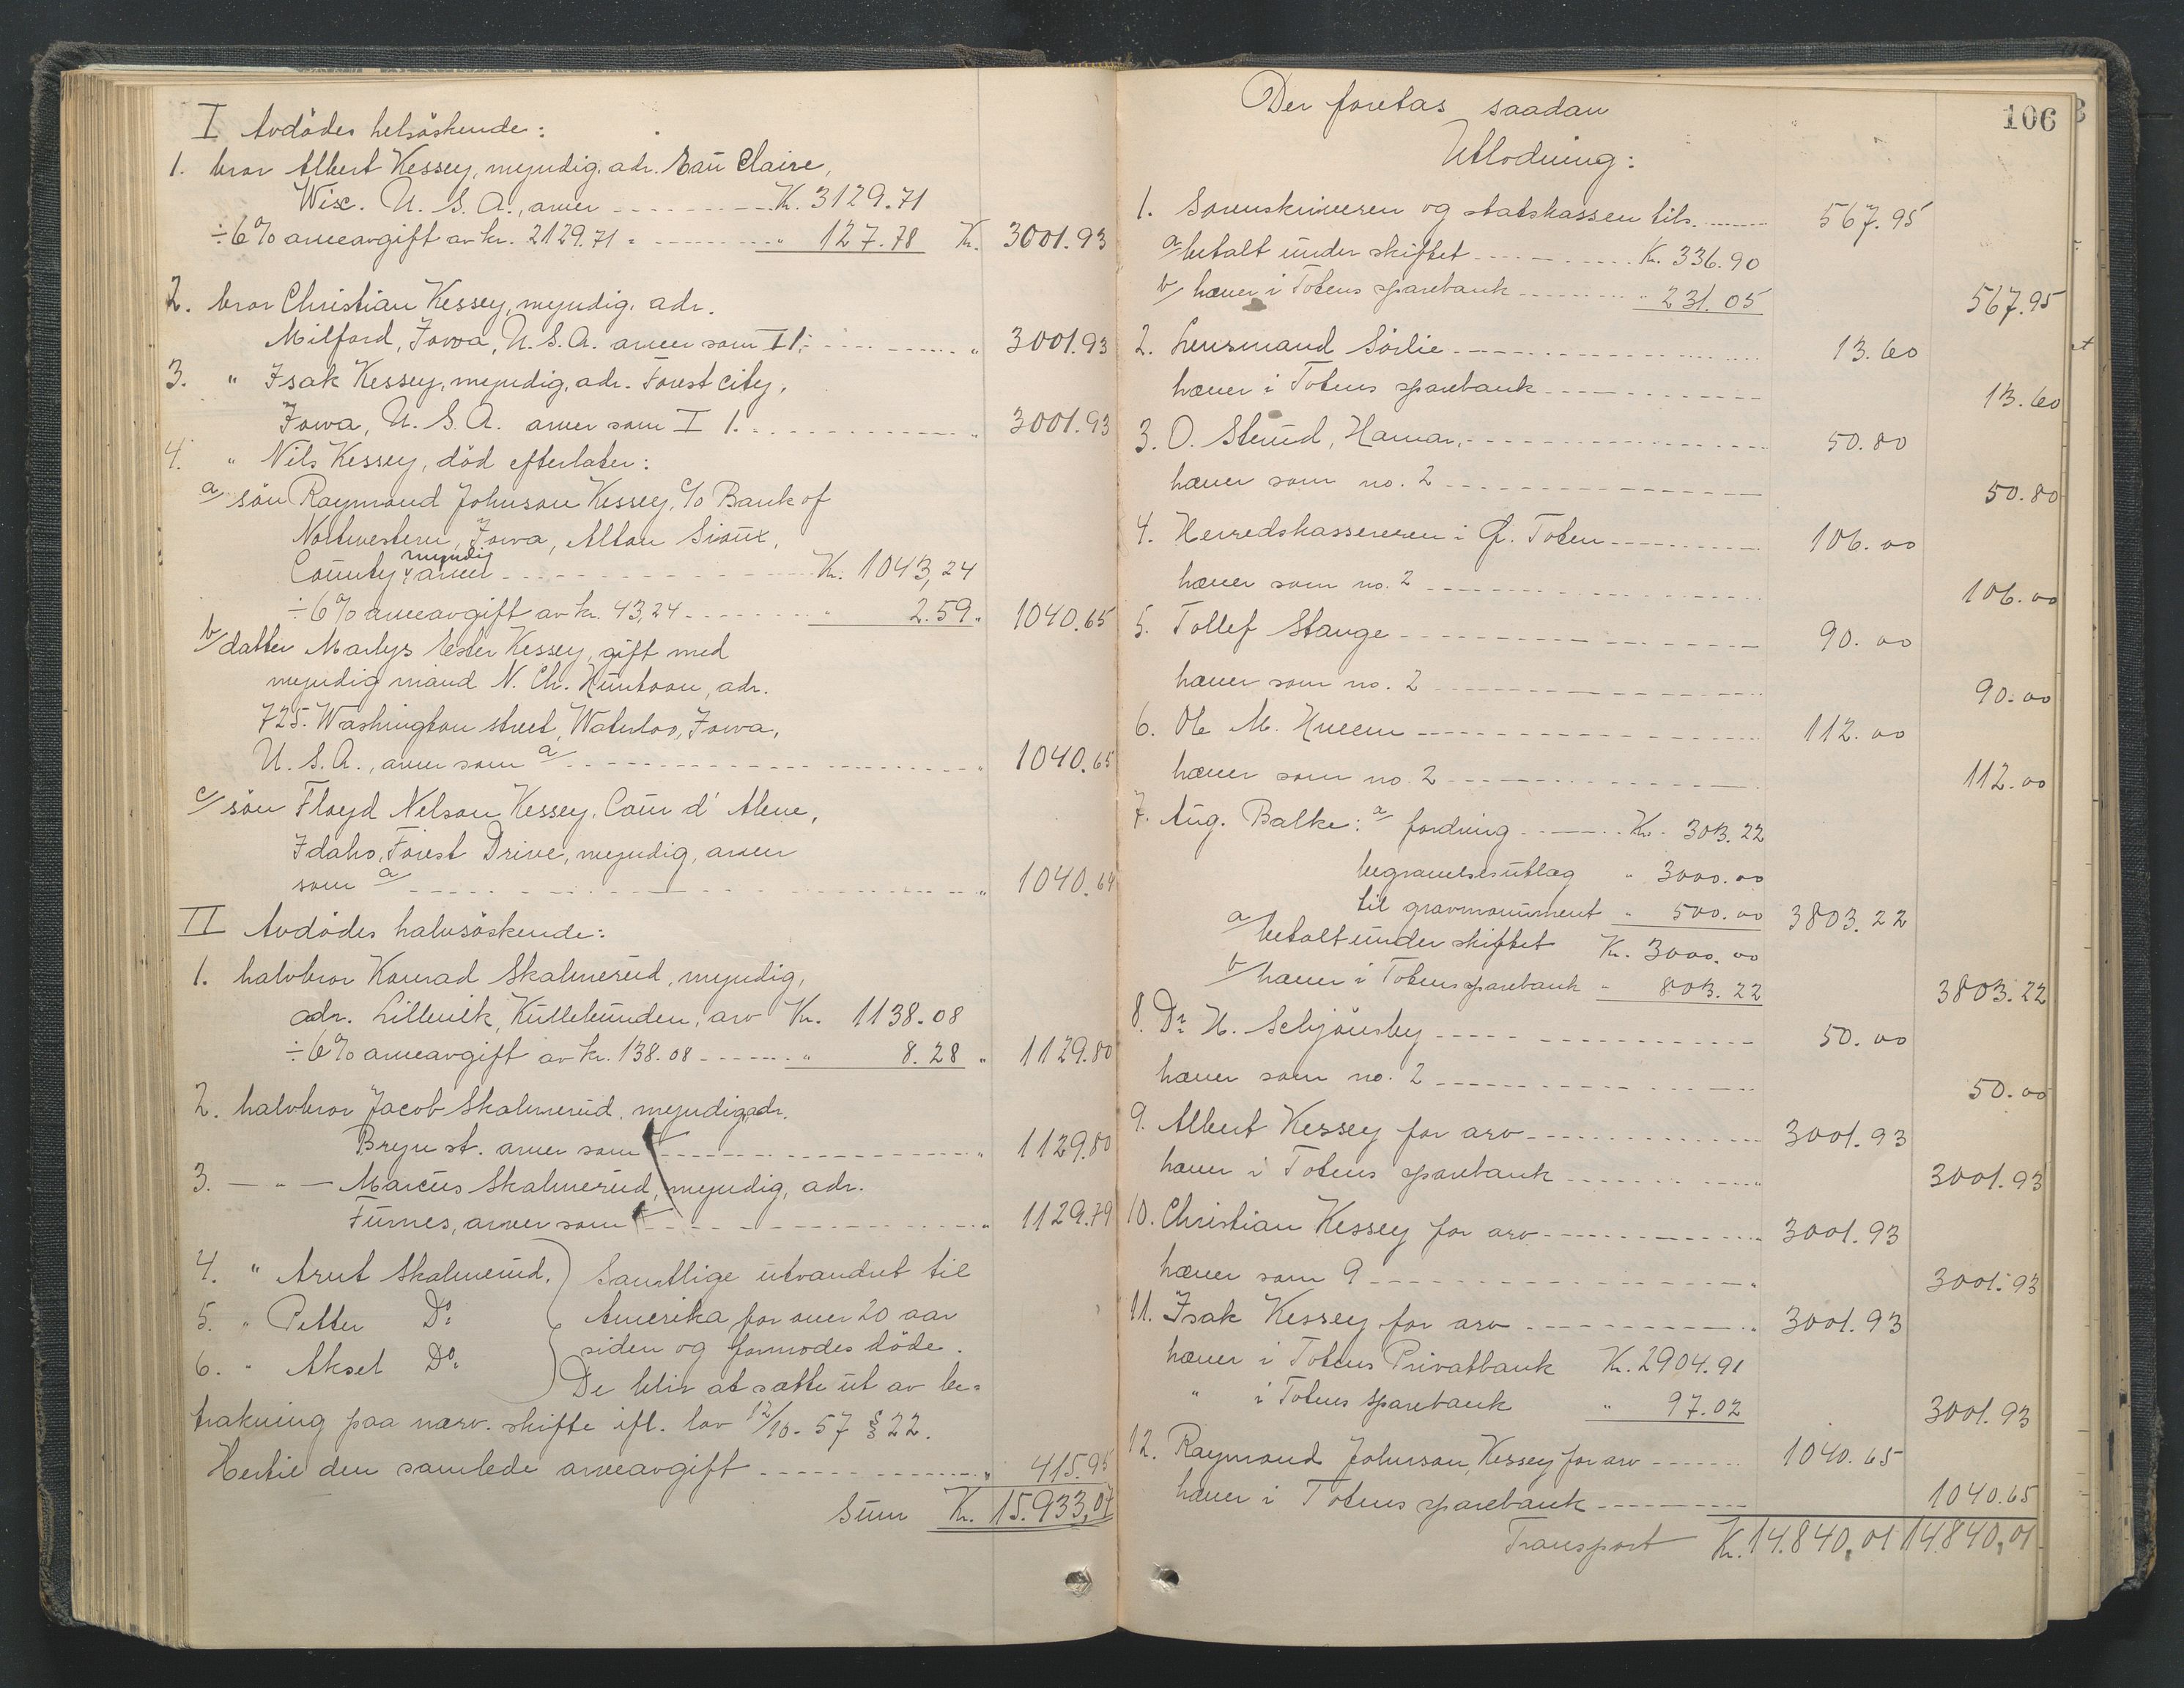 I Avdödes helsöskende:
1. bror Albert Kessey, myndig, adr. Eau Claire,
Wisc. U. S. A., arver Kr. 3129.71
÷ 6% arveavgift av kr. 2129.71 = " 127.78 Kr. 3001.93
2. bror Christian Kessey, myndig, adr.
Milford, Iowa, U. S. A. arver som I 1. " 3001.93
3. " Isak Kessey, myndig, adr. Forest City,
Iowa, U. S. A. arver som I 1. " 3001.93
4. " Nils Kessey, död efterlater:
a/ sön Raymond Johnson Kessey, c/o Bank of
Nortwestern, Iowa, Alton Sioux,
myndig
County, arver Kr. 1043,24
÷ 6% arveavgift av kr. 43,24 " 2.59 " 1040.65
b/ datter Marlys Ester Kessey, gift med
myndig mand N. Ch. Huntoon, adr.
725. Washington street, Waterloo, Iowa,
U. S. A., arver som a/ " 1040.65
c/ sön Floyd Nelson Kessey, Cour d' Alene,
Idaho, Forest Drive, myndig, arver
som a/ " 1040.64
II Avdödes halvsöskende:
1. halvbror Konrad Skalmerud, myndig,
adr. Lillevik, Kullebunden, arv Kr. 1138.08
÷ 6% arveavgift av kr. 138.08 " 8.28 " 1129.80
2. halvbror Jacob Skalmerud, myndig, adr.
Bryn st. arver som " 1129.80
3. — " — Marcus Skalmerud, myndig, adr.
Furnes, arver som " 1129.79
4. " Arnt Skalmerud. Samtlige utvandret til
5. " Petter Do: Amerika for over 20 aar
siden og formodes döde.
6. " Aksel Do:
De blir at sætte ut av be-
trakning paa nærv. skifte ifl. lov 12/10-57 § 22.
Hertil den samlede arveavgift " 415.95
Sum Kr. 15.933,07
106
Der foretas saadan
Utlodning:
1. Sorenskriveren og statskassen tils. 567.95
a/ betalt under skiftet Kr. 336.90
b/ hæver i Totens sparebank " 231.05 567.95
2. Lensmand Sörlie 13.60
hæver i Totens sparebank 13.60
3. O. Sterud, Hamar, 50.80
hæver som no. 2 50.80
4. Herredskassereren i Ø. Toten 106.00
hæver som no. 2 106.00
5. Tollef Stange 90.00
hæver som no. 2 90.00
6. Ole M. Hveem 112.00
hæver som no. 2 112.00
7. Aug. Balke: a/ fordring Kr. 303.22
begravelsesutlæg " 3000.00
til gravmonument " 500.00 3803.22
a/ betalt under skiftet Kr. 3000.00
b/ hæver i Totens sparebank " 803.22 3803.22
8. Dr. H. Schjönsby 50.00
hæver som no. 2 50.00
9. Albert Kessey for arv 3001.93
hæver i Totens sparebank 3001.93
10. Christian Kessey for arv 3001.93
hæver som 9 3001.93
11. Isak Kessey for arv 3001.93
hæver i Totens Privatbank Kr. 2904.91
" i Totens sparebank " 97.02 3001.93
12. Raymond Johnson Kessey for arv 1040.65
hæver i Totens sparebank 1040.65
Transport Kr. 14.840,01 14.840,01